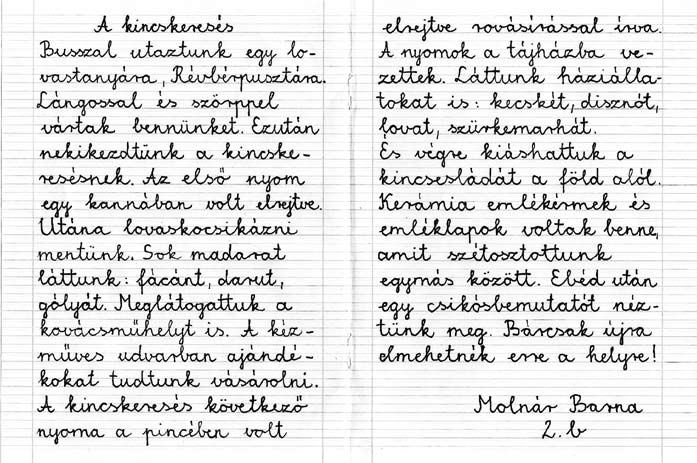 A kincskeresés
Busszal utaztunk egy lo-
vastanyára, Révbérpusztára.
Lángossal és szörppel
vártak bennünket. Ezután
nekikezdtünk a kincske-
resésnek. Az első nyom
egy kannában volt elrejtve.
Utána lovaskocsikázni
mentünk. Sok madarat
láttunk: fácánt, darut,
gólyát. Meglátogattuk a
kovácsműhelyt is. A kéz-
műves udvarban ajándé-
kokat tudtunk vásárolni.
A kincskeresés következő
nyoma a pincében volt
elrejtve rovásírással írva.
A nyomok a tájházba ve-
zettek. Láttunk háziálla-
tokat is: kecskét, disznót,
lovat, szürkemarhát.
És végre kiáshattuk a
kincsesládát a föld alól.
Kerámia emlékérmek és
emléklapok voltak benne,
amit szétosztottunk
egymás között. Ebéd után
egy csikósbemutatót néz-
tünk meg. Bárcsak újra
elmehetnék erre a helyre!
Molnár Barna
2. b